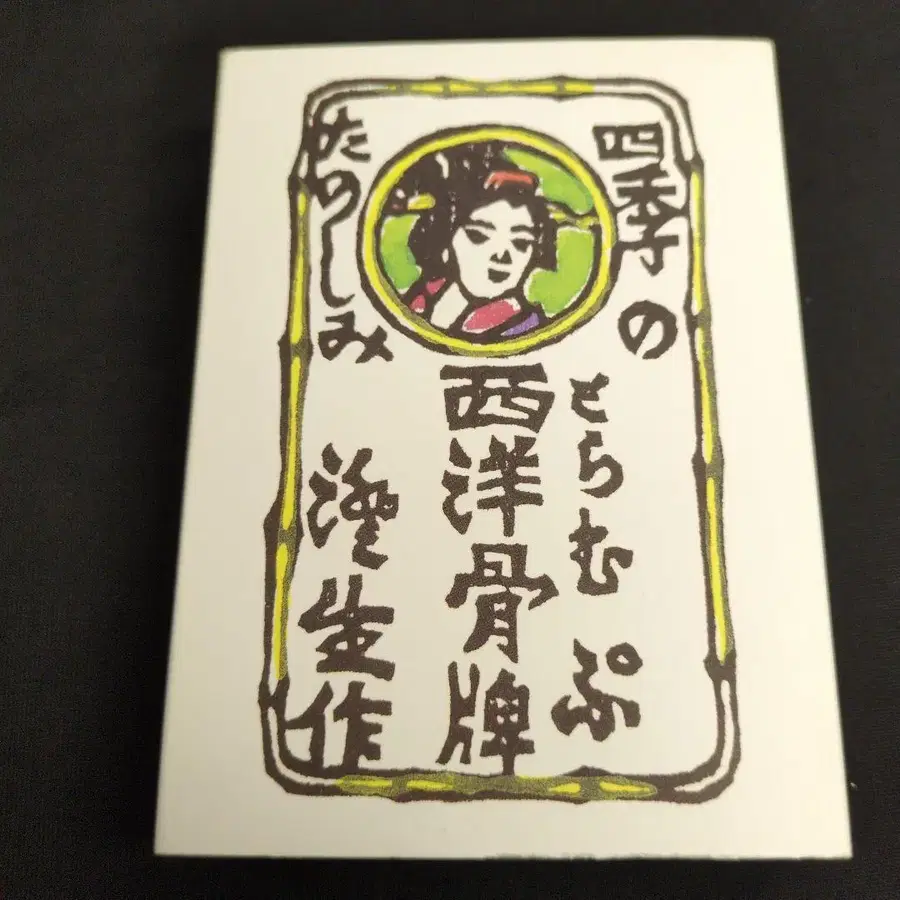 四季の
とらむぷ
西洋骨牌
たのしみ
澄生作